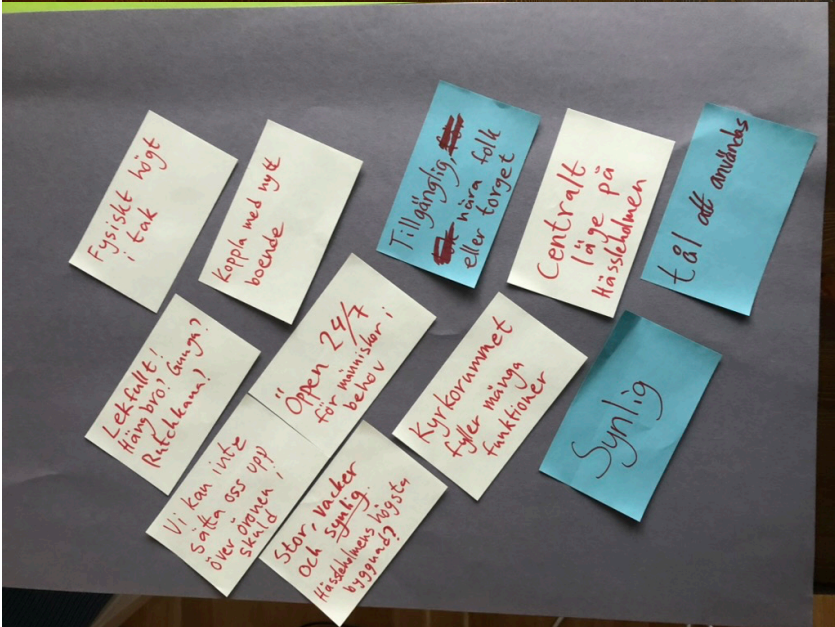 Fysiskt högt
i tak
Koppla med nytt
boende
Tillgänglig,
nära folk
eller torget
Centralt
läge på
Hässleholmen
tål att användas
Lekfullt!
Hängbro? Gunga?
Rutchkana?
Öppen 24/7
för människor i
behov
Kyrkorummet
fyller många
funktioner
Synlig
Vi kan inte
sätta oss upp
över öronen i
skuld
Stor, vacker
och synlig.
Hässleholmens högsta
byggnad?